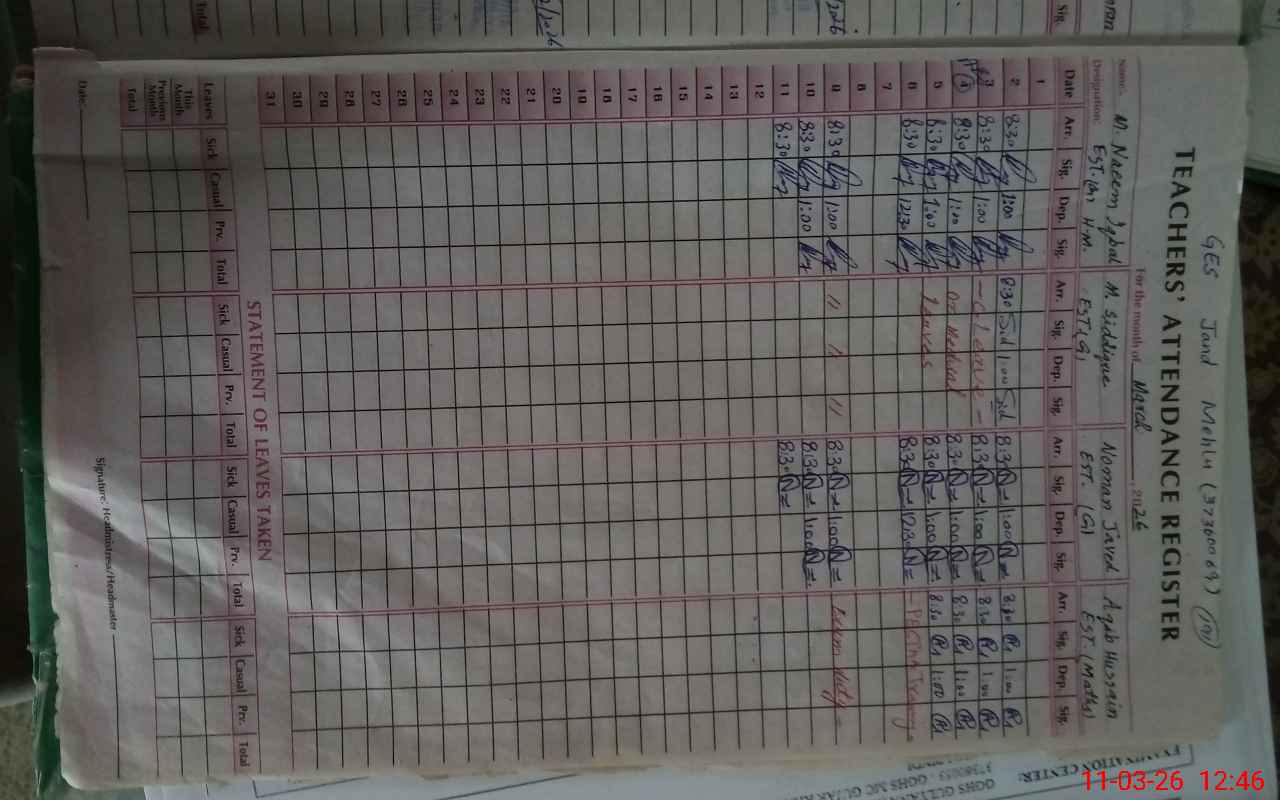 GES Jand Mehlu (37300069)
TEACHERS' ATTENDANCE REGISTER
For the month of March, 2026
Name: M. Naeem Iqbal M. Siddique Noman Javed Aqib Hussain
Designation: EST. (A) H.M. EST (G) EST. (G) EST. (Maths)
Date Arr. Sig. Dep. Sig. Arr. Sig. Dep. Sig. Arr. Sig. Dep. Sig. Arr. Sig. Dep. Sig.
1
2 8:30 1:00 8:30 Sid 1:00 Sid 8:30 1:00 8:30 1:00
3 8:30 1:00 - C. Leave - 8:30 1:00 8:30 1:00
4 8:30 1:00 On Medical 8:30 1:00 8:30 1:00
5 8:30 1:00 Leaves 8:30 1:00 8:30 1:00
6 8:30 12:30 8:30 12:30
7
8
9 8:30 1:00 " " " 8:30 1:00 Exam duty
10 8:30 1:00 8:30 1:00
11 8:30 8:30
12
13
14
15
16
17
18
19
20
21
22
23
24
25
26
27
28
29
30
31
STATEMENT OF LEAVES TAKEN
Leaves Sick Casual Prv. Total Sick Casual Prv. Total Sick Casual Prv. Total Sick Casual Prv. Total
This Month
Previous Month
Total
Date:
Signature: Headmistress/Headmaster
Total
Sig.
EXAMINATION CENTER:
11-03-26 12:46